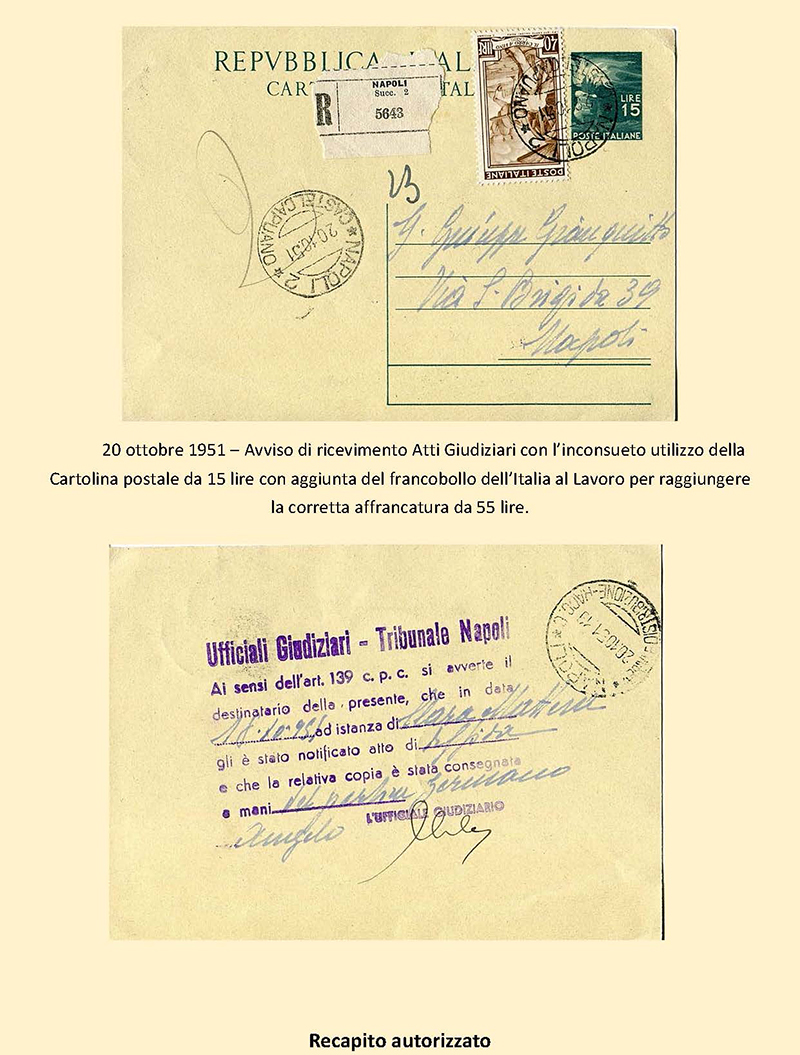 REPVBBLICA ITAL
CART TAL
NAPOLI
Succ. 2
R
5643
40 LIRE
POSTE ITALIANE
LIRE
15
POSTE ITALIANE
NAPOLI 2
NAPOLI 2 * CASTELCAPUANO *
20.10.51
G. Giuseppe Gianquitto
Via S. Brigida 39
Napoli
20 ottobre 1951 – Avviso di ricevimento Atti Giudiziari con l’inconsueto utilizzo della
Cartolina postale da 15 lire con aggiunta del francobollo dell’Italia al Lavoro per raggiungere
la corretta affrancatura da 55 lire.
Ufficiali Giudiziari - Tribunale Napoli
Ai sensi dell'art. 139 c. p. c. si avverte il
destinatario della presente, che in data
ad istanza di
gli è stato notificato atto di
e che la relativa copia è stata consegnata
a mani del
Angelo
L'UFFICIALE GIUDIZIARIO
20.10.51
Recapito autorizzato